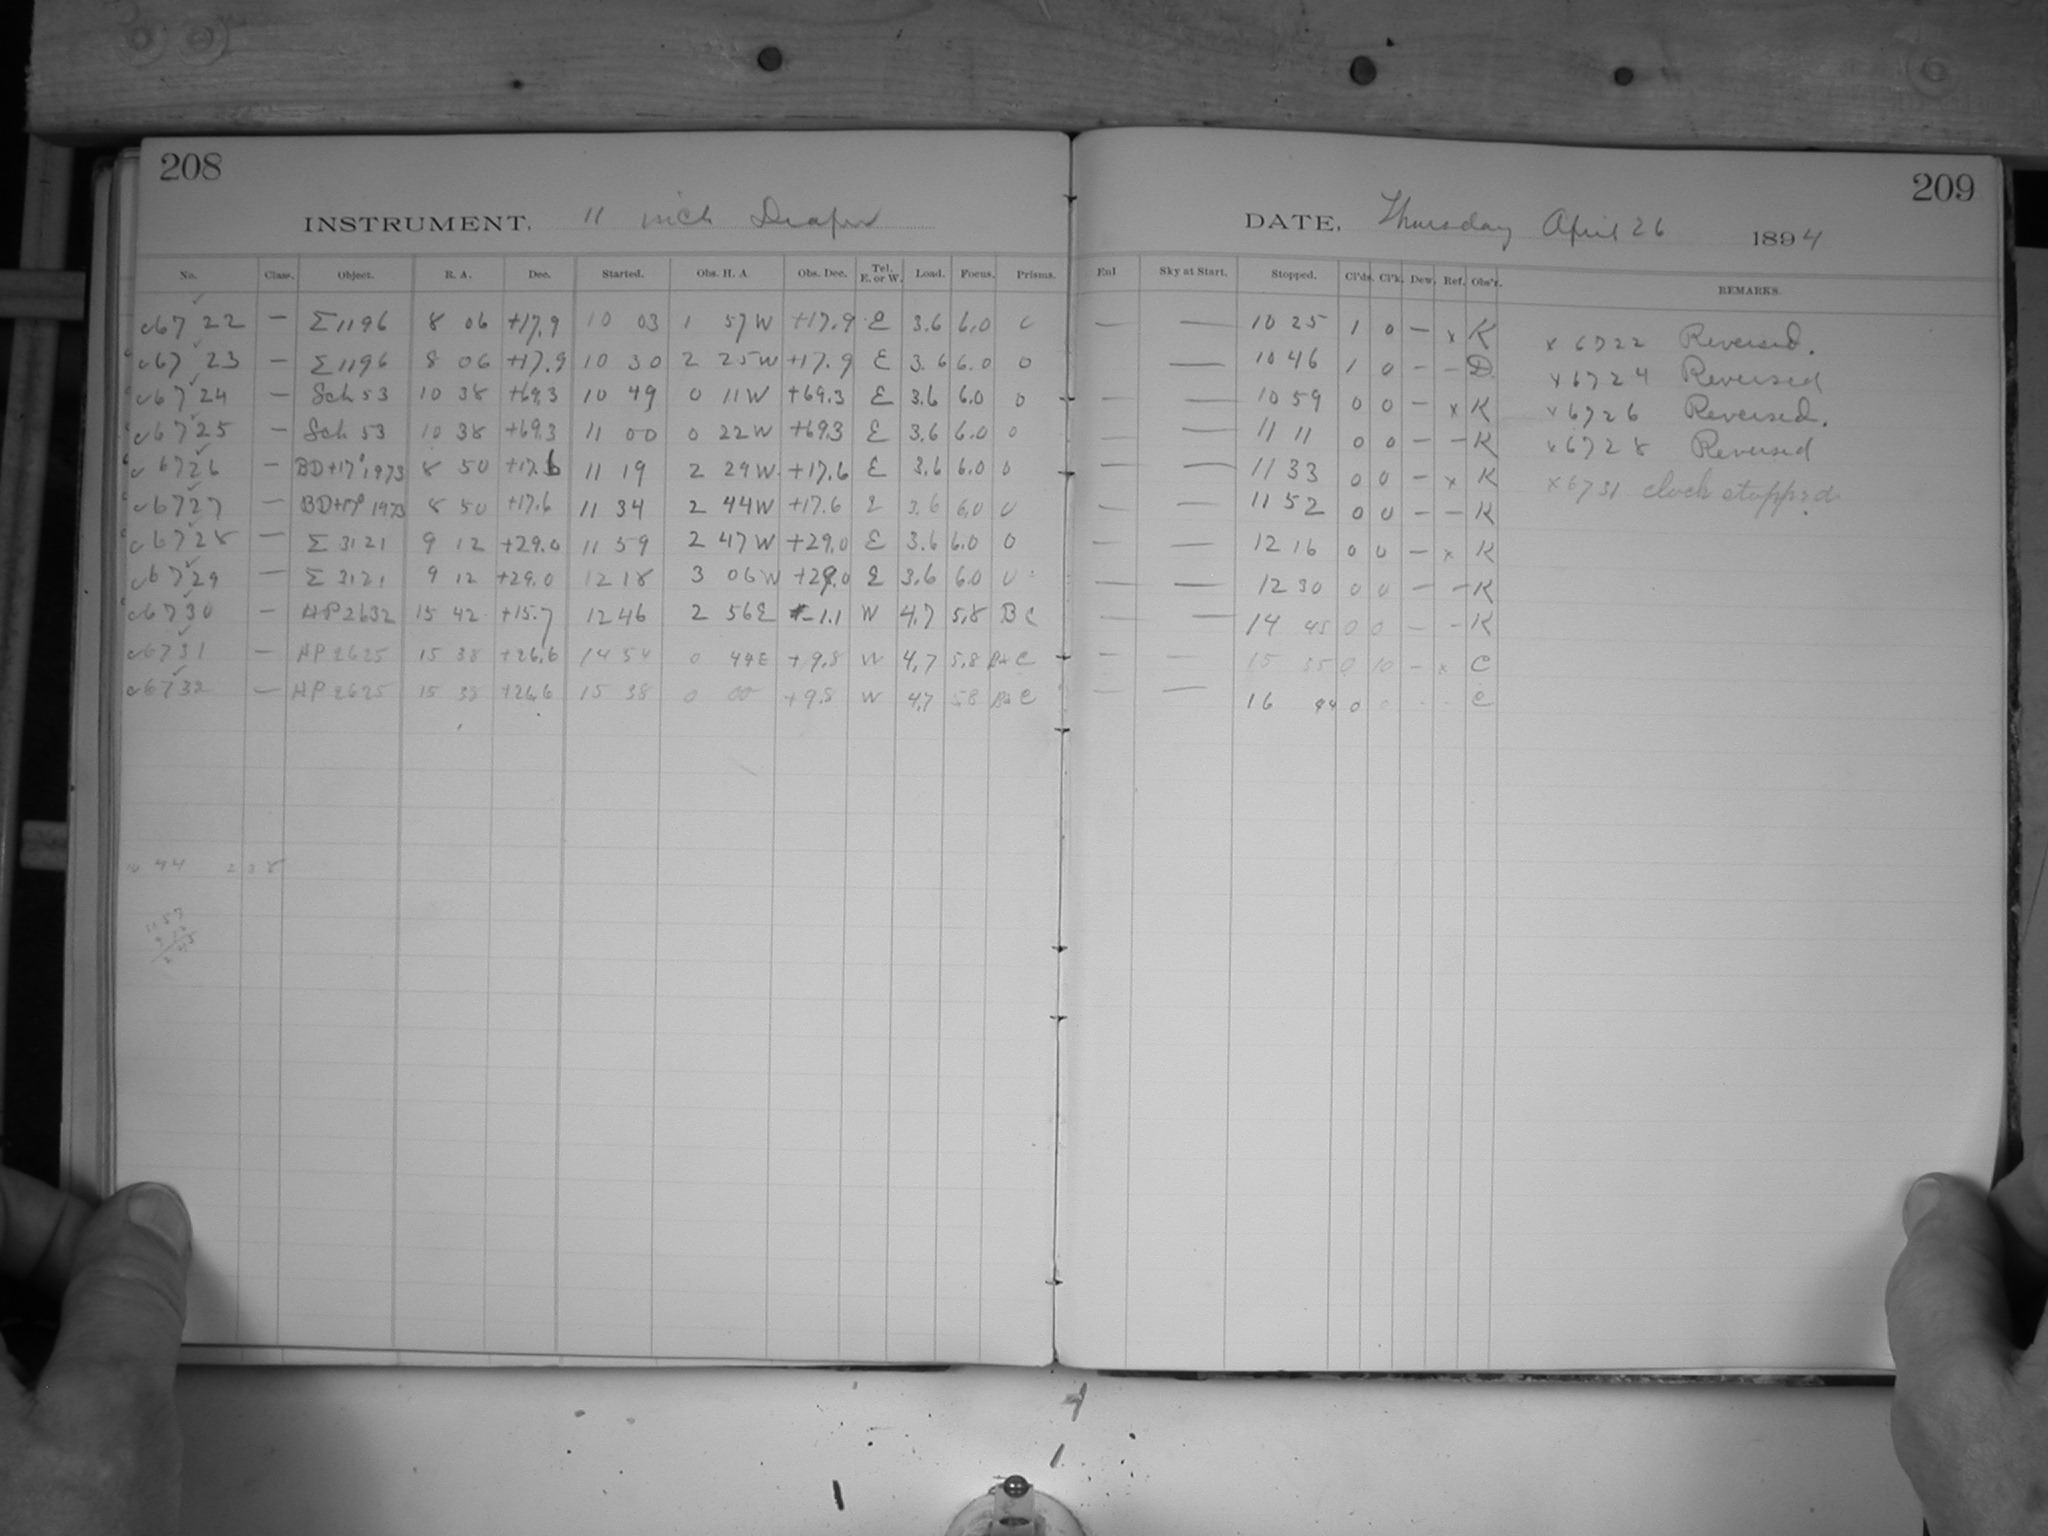 208
INSTRUMENT. 11 inch Draper
No. Class. Object. R. A. Dec. Started. Obs. H. A Obs. Dec. Tel. E. or W. Load. Focus. Prisms.
c6722 — Σ1196 8 06 +17.9 10 03 1 57W +17.9 E 3.6 6.0 0
c6723 — Σ1196 8 06 +17.9 10 30 2 25W +17.9 E 3.6 6.0 0
c6724 — Sch 53 10 38 +69.3 10 49 0 11W +69.3 E 3.6 6.0 0
c6725 — Sch 53 10 38 +69.3 11 00 0 22W +69.3 E 3.6 6.0 0
c6726 — BD+17°1973 8 50 +17.6 11 19 2 29W +17.6 E 3.6 6.0 0
c6727 — BD+17°1973 8 50 +17.6 11 34 2 44W +17.6 E 3.6 6.0 0
c6728 — Σ 3121 9 12 +29.0 11 59 2 47W +29.0 E 3.6 6.0 0
c6729 — Σ 3121 9 12 +29.0 12 18 3 06W +29.0 E 3.6 6.0 0
c6730 — HP2632 15 42 +15.7 12 46 2 56E -1.1 W 4.7 5.8 B C
c6731 — HP2625 15 38 +26.6 14 54 0 44E +9.8 W 4.7 5.8 B+C
c6732 — HP2625 15 38 +26.6 15 38 0 00 +9.8 W 4.7 5.8 B+C
44 238
11 57
9 12
2 45
209
DATE. Thursday April 26 1894
Enl Sky at Start. Stopped. Cl'ds. Cl'k. Dew. Ref. Obs'r. REMARKS.
— — 10 25 1 0 — x K x 6722 Reversed.
— 10 46 1 0 — — D. x6724 Reversed
— — 10 59 0 0 — x K x6726 Reversed.
— — 11 11 0 0 — — K x6728 Reversed
— — 11 33 0 0 — x K x6731 clock stopped
— — 11 52 0 0 — — K
— — 12 16 0 0 — x K
— — 12 30 0 0 — — K
— — 14 45 0 0 — — K
— — 15 35 0 10 — x C
— — 16 44 0 0 - - C